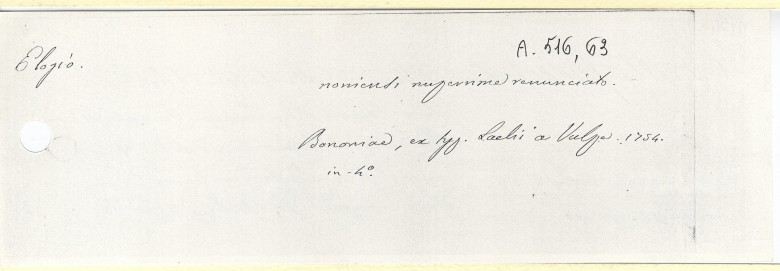 A. 516, 63
Elogio.
noniensi nuperrime renunciato.
Bononiae, ex typ. Laelii a Vulpe. 1754.
in-4º.